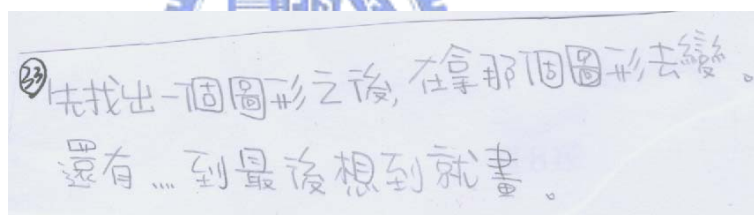 ㉝先找出一個圖形之後,在拿那個圖形去變。
還有....到最後想到就畫。